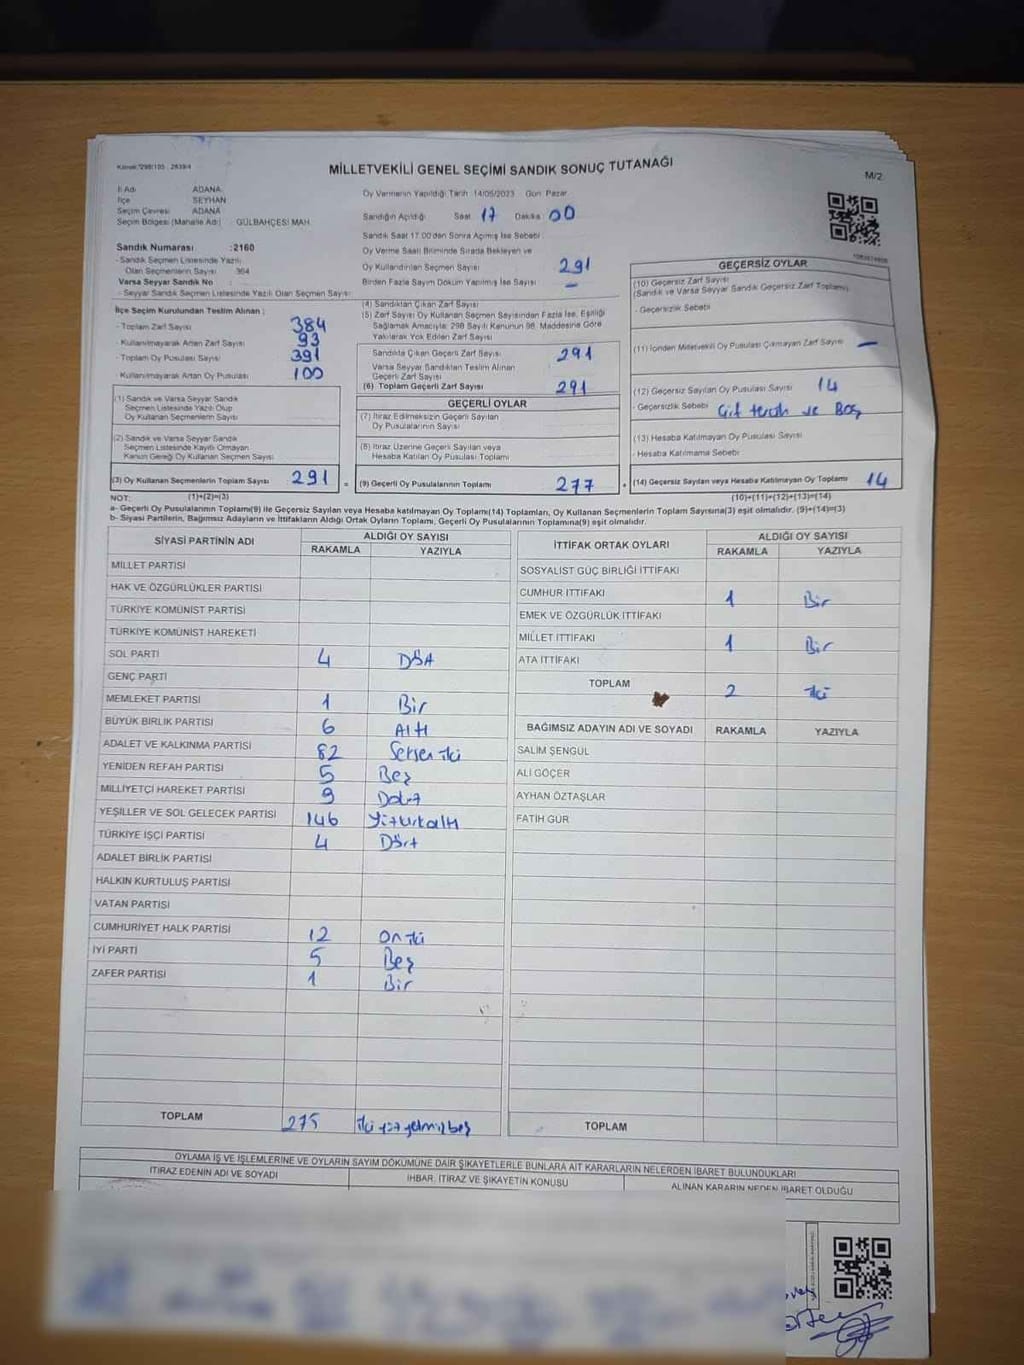 MİLLETVEKİLİ GENEL SEÇİMİ SANDIK SONUÇ TUTANAĞI
M/2
İl Adı ADANA
İlçe SEYHAN
Seçim Çevresi ADANA
Seçim Bölgesi (Mahalle Adı) : GÜLBAHÇESİ MAH.
Sandık Numarası : 2160
- Sandık Seçmen Listesinde Yazılı
Olan Seçmenlerin Sayısı 364
Varsa Seyyar Sandık No :
- Seyyar Sandık Seçmen Listesinde Yazılı Olan Seçmen Sayısı:
İlçe Seçim Kurulundan Teslim Alınan :
- Toplam Zarf Sayısı 384
- Kullanılmayarak Artan Zarf Sayısı 93
- Toplam Oy Pusulası Sayısı 391
- Kullanılmayarak Artan Oy Pusulası 100
(1) Sandık ve Varsa Seyyar Sandık
Seçmen Listesinde Yazılı Olup
Oy Kullanan Seçmenlerin Sayısı
(2) Sandık ve Varsa Seyyar Sandık
Seçmen Listesinde Kayıtlı Olmayan
Kanun Gereği Oy Kullanan Seçmen Sayısı
(3) Oy Kullanan Seçmenlerin Toplam Sayısı 291
(1)+(2)=(3)
Oy Vermenin Yapıldığı Tarih 14/05/2023 Gün Pazar
Sandığın Açıldığı Saat 17 Dakika 00
Sandık Saat 17.00'den Sonra Açılmış İse Sebebi :
Oy Verme Saati Bitiminde Sırada Bekleyen ve
Oy Kullandırılan Seçmen Sayısı 291
Birden Fazla Sayım Döküm Yapılmış İse Sayısı : –
(4) Sandıktan Çıkan Zarf Sayısı
(5) Zarf Sayısı Oy Kullanan Seçmen Sayısından Fazla İse, Eşitliği
Sağlamak Amacıyla; 298 Sayılı Kanunun 98. Maddesine Göre
Yakılarak Yok Edilen Zarf Sayısı
Sandıkta Çıkan Geçerli Zarf Sayısı 291
Varsa Seyyar Sandıktan Teslim Alınan
Geçerli Zarf Sayısı
(6) Toplam Geçerli Zarf Sayısı 291
GEÇERLİ OYLAR
(7) İtiraz Edilmeksizin Geçerli Sayılan
Oy Pusulalarının Sayısı
(8) İtiraz Üzerine Geçerli Sayılan veya
Hesaba Katılan Oy Pusulaları Toplamı
= (9) Geçerli Oy Pusulalarının Toplamı 277
GEÇERSİZ OYLAR
(10) Geçersiz Zarf Sayısı
(Sandık ve Varsa Seyyar Sandık Geçersiz Zarf Toplamı)
- Geçersizlik Sebebi
(11) İçinden Milletvekili Oy Pusulası Çıkmayan Zarf Sayısı –
(12) Geçersiz Sayılan Oy Pusulası Sayısı 14
- Geçersizlik Sebebi Çift tercih ve Boş
(13) Hesaba Katılmayan Oy Pusulası Sayısı
- Hesaba Katılmama Sebebi
+ (14) Geçersiz Sayılan veya Hesaba Katılmayan Oy Toplamı 14
(10)+(11)+(12)+(13)=(14)
NOT:
a- Geçerli Oy Pusulalarının Toplamı(9) ile Geçersiz Sayılan veya Hesaba katılmayan Oy Toplamı(14) Toplamları, Oy Kullanan Seçmenlerin Toplam Sayısına(3) eşit olmalıdır. (9)+(14)=(3)
b- Siyasi Partilerin, Bağımsız Adayların ve İttifakların Aldığı Ortak Oyların Toplamı, Geçerli Oy Pusulalarının Toplamına(9) eşit olmalıdır.
SİYASİ PARTİNİN ADI ALDIĞI OY SAYISI
RAKAMLA YAZIYLA
MİLLET PARTİSİ
HAK VE ÖZGÜRLÜKLER PARTİSİ
TÜRKİYE KOMÜNİST PARTİSİ
TÜRKİYE KOMÜNİST HAREKETİ
SOL PARTİ 4 Dört
GENÇ PARTİ
MEMLEKET PARTİSİ 1 Bir
BÜYÜK BİRLİK PARTİSİ 6 Altı
ADALET VE KALKINMA PARTİSİ 82 Seksen iki
YENİDEN REFAH PARTİSİ 5 Beş
MİLLİYETÇİ HAREKET PARTİSİ 9 Dokuz
YEŞİLLER VE SOL GELECEK PARTİSİ 146 Yüzkırkaltı
TÜRKİYE İŞÇİ PARTİSİ 4 Dört
ADALET BİRLİK PARTİSİ
HALKIN KURTULUŞ PARTİSİ
VATAN PARTİSİ
CUMHURİYET HALK PARTİSİ 12 On iki
İYİ PARTİ 5 Beş
ZAFER PARTİSİ 1 Bir
TOPLAM 275 iki yüz yetmiş beş
İTTİFAK ORTAK OYLARI ALDIĞI OY SAYISI
RAKAMLA YAZIYLA
SOSYALİST GÜÇ BİRLİĞİ İTTİFAKI
CUMHUR İTTİFAKI 1 Bir
EMEK VE ÖZGÜRLÜK İTTİFAKI
MİLLET İTTİFAKI 1 Bir
ATA İTTİFAKI
TOPLAM 2 iki
BAĞIMSIZ ADAYIN ADI VE SOYADI RAKAMLA YAZIYLA
SALİM ŞENGÜL
ALİ GÖÇER
AYHAN ÖZTAŞLAR
FATİH GÜR
TOPLAM
OYLAMA İŞ VE İŞLEMLERİNE VE OYLARIN SAYIM DÖKÜMÜNE DAİR ŞİKAYETLERLE BUNLARA AİT KARARLARIN NELERDEN İBARET BULUNDUKLARI
İTİRAZ EDENİN ADI VE SOYADI İHBAR, İTİRAZ VE ŞİKAYETİN KONUSU ALINAN KARARIN NEDEN İBARET OLDUĞU